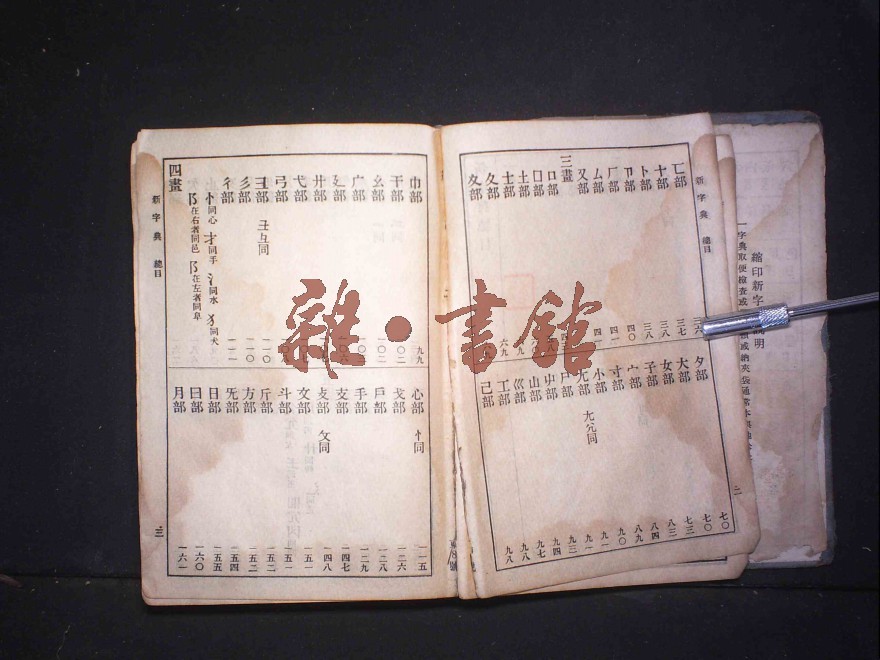 縮印新字
說明
一字典取便檢查或
新字典 總目
匸部 三六
十部 三七
卜部 三八
卩部 三八
厂部 四〇
厶部 四一
又部
三畫
口部
囗部
土部
士部 六九
夂部
夊部
夕部 七〇
大部 七〇
女部 七三
子部
宀部
寸部
小部
尢部 尣同
尸部
屮部
山部
巛部
工部
己部 九八
二
巾部 九九
干部 一〇二
幺部 一〇二
广部
廴部
廾部
弋部
弓部
彐部 彑同 一一〇
彡部 一一〇
彳部 一一一
忄同心 扌同手 氵同水 犭同犬
阝在右者同邑 阝在左者同阜
四畫
心部 忄同 一一五
戈部 一二六
戶部 一二八
手部 一二九
支部 一四七
攴部 攵同 一四八
文部 一五一
斗部 一五一
斤部 一五二
方部 一五二
无部 一五四
日部 一五五
曰部 一六〇
月部 一六一
新字典 總目
三
雜·書館